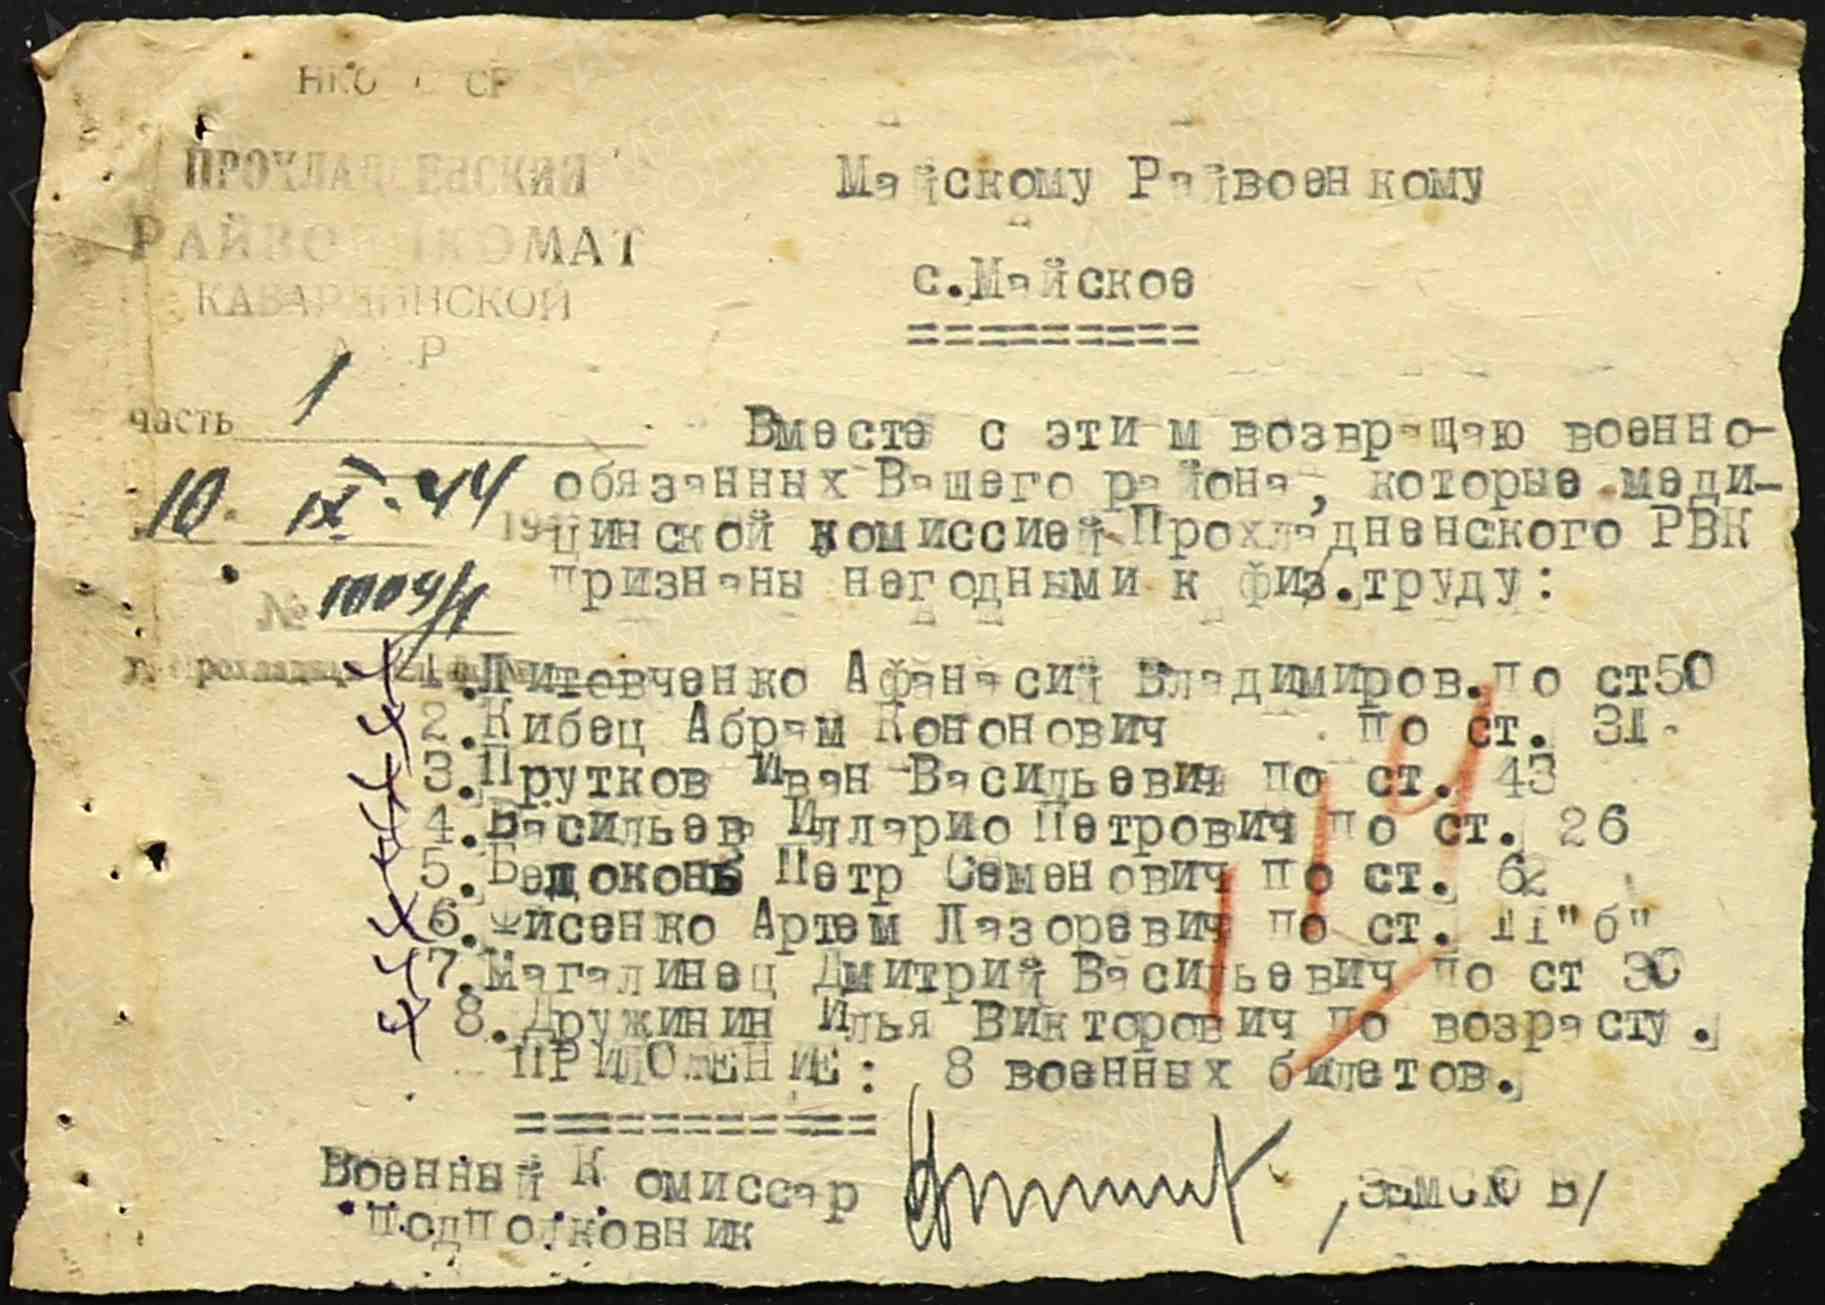 НКО СССР
ПРОХЛАДНЕНСКИЙ
РАЙВОЕНКОМАТ
КАБАРДИНСКОЙ
АССР
часть 1
10. IX. 44
№ 1009/1
Майскому Райвоенкому
с.Майское
Вместе с этим возвращаю военно-
обязанных Вашего района, которые меди-
цинской комиссией Прохладненского РВК
признаны негодными к физ.труду:
1.Литовченко Афанасий Владимиров.по ст50
2.Кибец Абрам Кононович по ст. 31
3.Прутков Иван Васильевич по ст. 43
4.Васильев Илларио Петрович по ст. 26
5.Бедоконь Петр Семенович по ст. 62
6. Артем Лазоревич по ст. 11"б"
7.Магалинец Дмитрий Васильевич по ст 30
8.Дружинин Илья Викторович по возрасту.
ПРИЛОЖЕНИЕ: 8 военных билетов.
Военный Комиссар
подполковник /ЗЕМСКОВ/